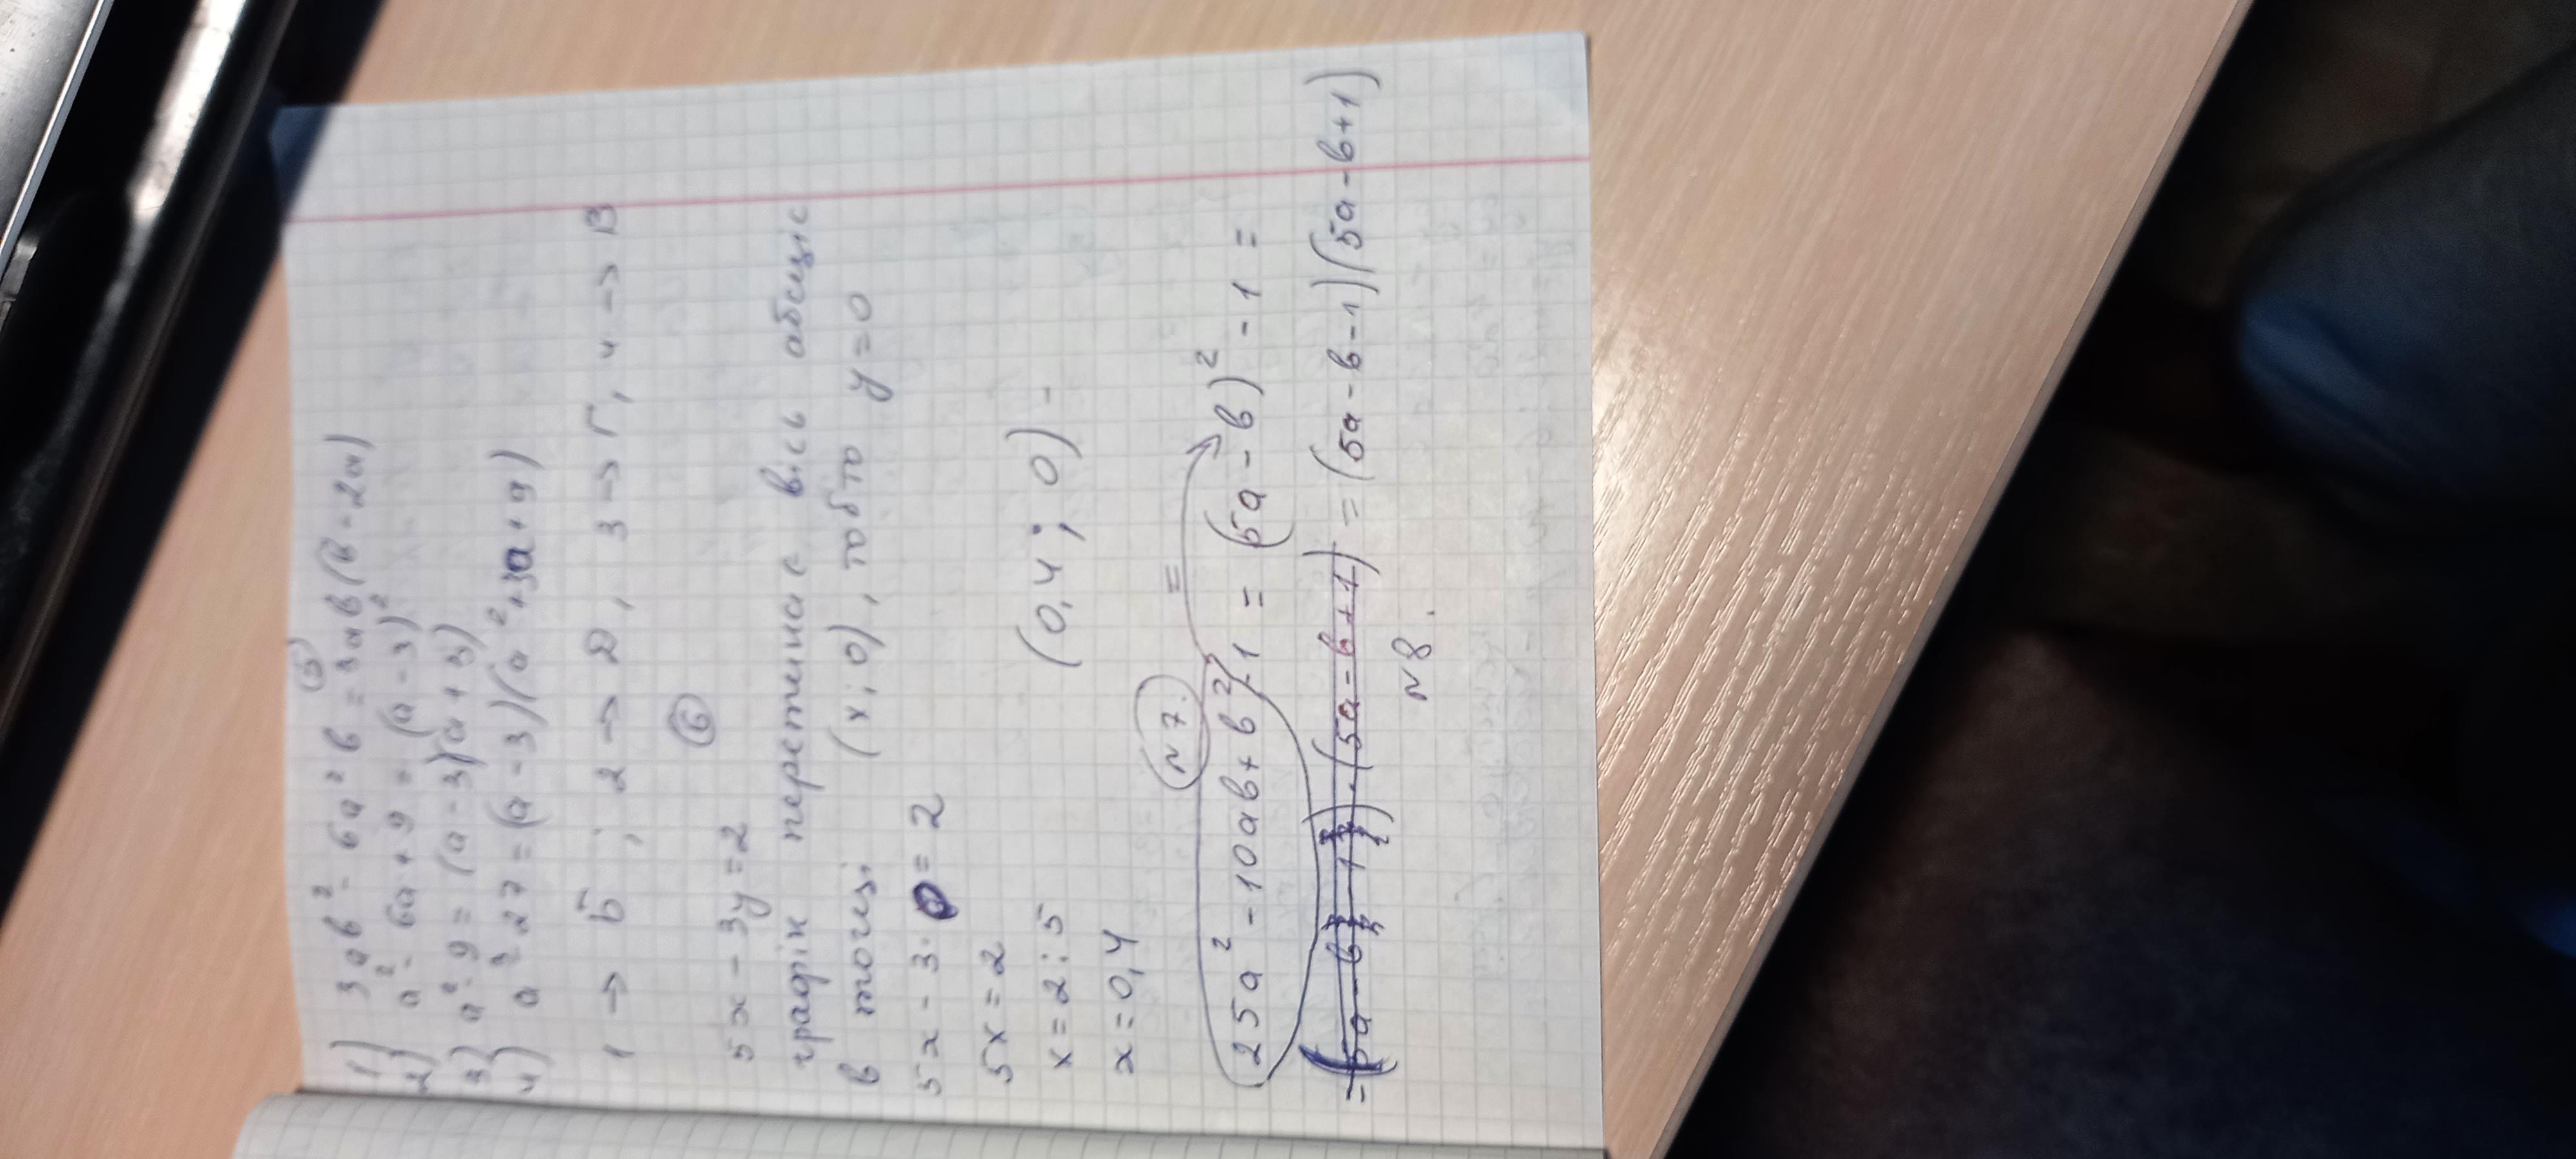 5
1) 3ab² - 6a²b = 3ab(b - 2a)
2) a² - 6a + 9 = (a - 3)²
3) a² - 9 = (a - 3)(a + 3)
4) a³ - 27 = (a - 3)(a² + 3a + 9)
1 → Б ; 2 → Д, 3 → Г, 4 → В
6
5x - 3y = 2
графік перетинає вісь абсціс
в точці (x; 0), тобто y = 0
5x - 3·0 = 2
5x = 2
x = 2 : 5 (0,4 ; 0) -
x = 0,4
№7. =
25a² - 10ab + b² - 1 = (5a - b)² - 1 =
= (5a - b - 1)(5a - b + 1)
№8.